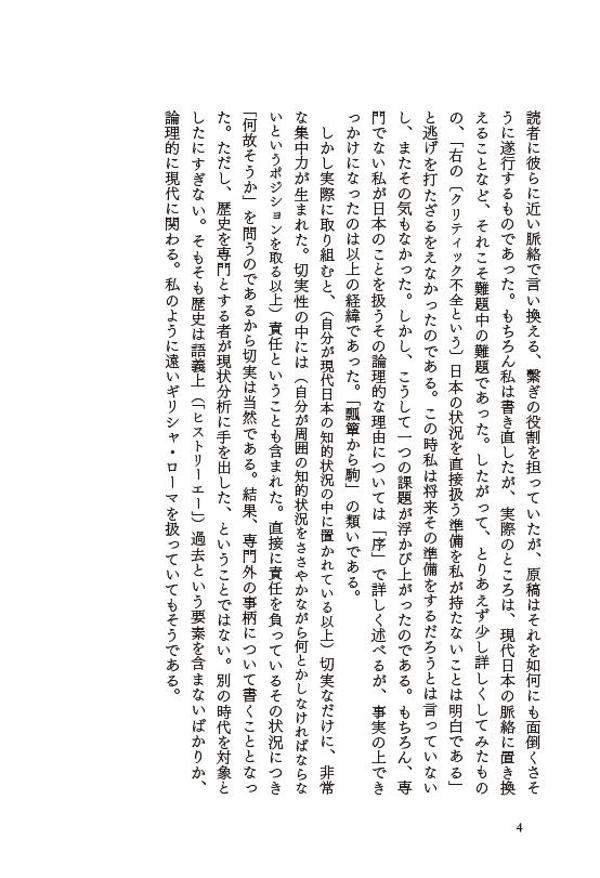 読者に彼らに近い脈絡で言い換える、繋ぎの役割を担っていたが、原稿はそれを如何にも面倒くさそ
うに遂行するものであった。もちろん私は書き直したが、実際のところは、現代日本の脈絡に置き換
えることなど、それこそ難題中の難題であった。したがって、とりあえず少し詳しくしてみたもの
の、「右の〔クリティック不全という〕日本の状況を直接扱う準備を私が持たないことは明白である」
と逃げを打たざるをえなかったのである。この時私は将来その準備をするだろうとは言っていない
し、またその気もなかった。しかし、こうして一つの課題が浮かび上がったのである。もちろん、専
門でない私が日本のことを扱うその論理的な理由については「序」で詳しく述べるが、事実の上でき
っかけになったのは以上の経緯であった。「瓢簞から駒」の類いである。
しかし実際に取り組むと、（自分が現代日本の知的状況の中に置かれている以上）切実なだけに、非常
な集中力が生まれた。切実性の中には（自分が周囲の知的状況をささやかながら何とかしなければならな
いというポジションを取る以上）責任ということも含まれた。直接に責任を負っているその状況につき
「何故そうか」を問うのであるから切実は当然である。結果、専門外の事柄について書くこととなっ
た。ただし、歴史を専門とする者が現状分析に手を出した、ということではない。別の時代を対象と
したにすぎない。そもそも歴史は語義上（「ヒストリーエー」）過去という要素を含まないばかりか、
論理的に現代に関わる。私のように遠いギリシャ・ローマを扱っていてもそうである。
4